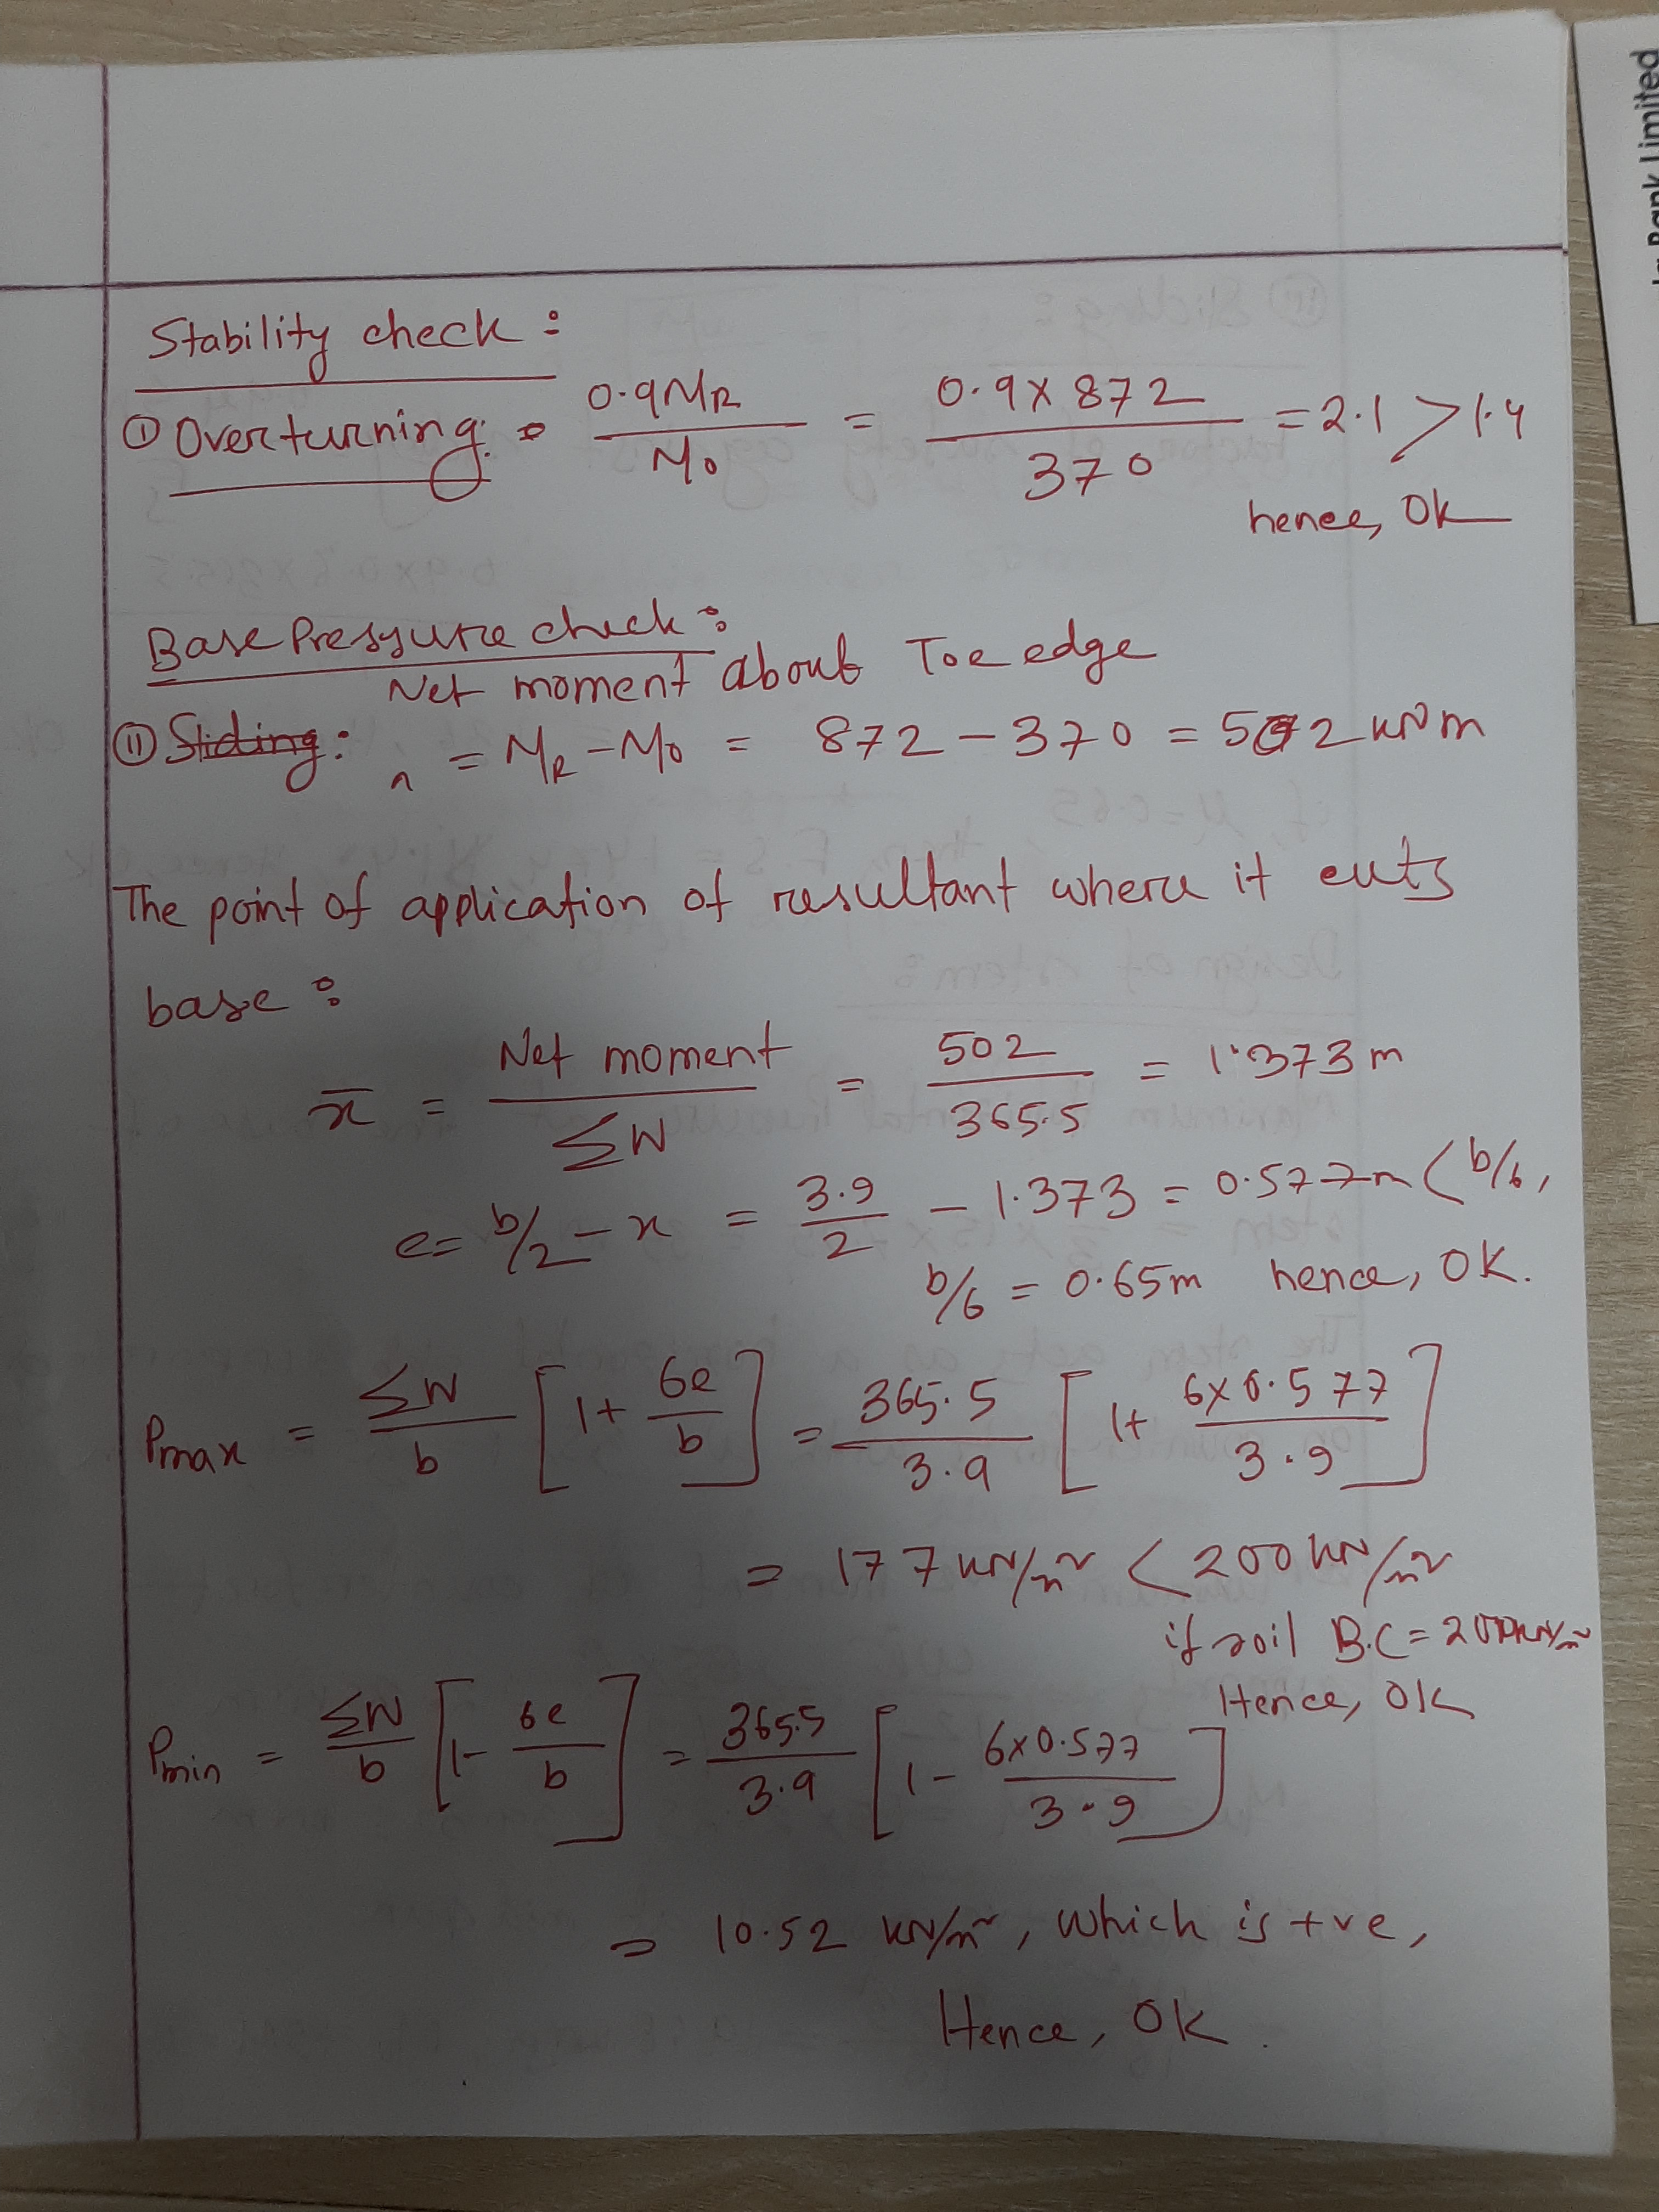 Bank Limited
Stability check :
① Overturning: = 0.9MR / Mo = 0.9 x 872 / 370 = 2.1 > 1.4
hence, OK
Base Pressure check :
Net moment about Toe edge
② Sliding: = MR - Mo = 872 - 370 = 502 kNm
The point of application of resultant where it cuts
base :
x̄ = Net moment / ΣW = 502 / 365.5 = 1.373 m
e = b/2 - x = 3.9 / 2 - 1.373 = 0.577m < b/6,
b/6 = 0.65m hence, OK.
Pmax = ΣW / b [1 + 6e / b] = 365.5 / 3.9 [1 + 6x0.577 / 3.9]
= 177 kN/m² < 200 kN/m²
if soil B.C = 200kN/m²
Hence, OK
Pmin = ΣW / b [1 - 6e / b] = 365.5 / 3.9 [1 - 6x0.577 / 3.9]
= 10.52 kN/m², which is +ve,
Hence, OK.